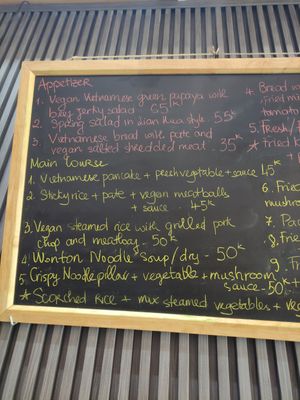 Appetizer
1. Vegan Vietnamese green papaya with
beef jerky salad 65k
2. Spring salad in Lian Hoa style 55k
3. Vietnamese bread with pate and
vegan salted shredded meat. 35k
Main Course
1. Vietnamese pancake + fresh vegetable + sauce 45k
2. Sticky rice + pate + vegan meatballs
+ sauce. 45k
3. Vegan steamed rice with grilled pork
chop and meatloaf - 50k
4. Wonton Noodle soup/dry - 50k
5. Crispy Noodle pillar + vegetable + mushroom
sauce - 50k
* Scorched Rice + mix steamed vegetables +
4. Bread w
fried m
tomato
5. Fresh/
* fried
6. Fried
mushro
7. Pa
8. Fri
9. Fr